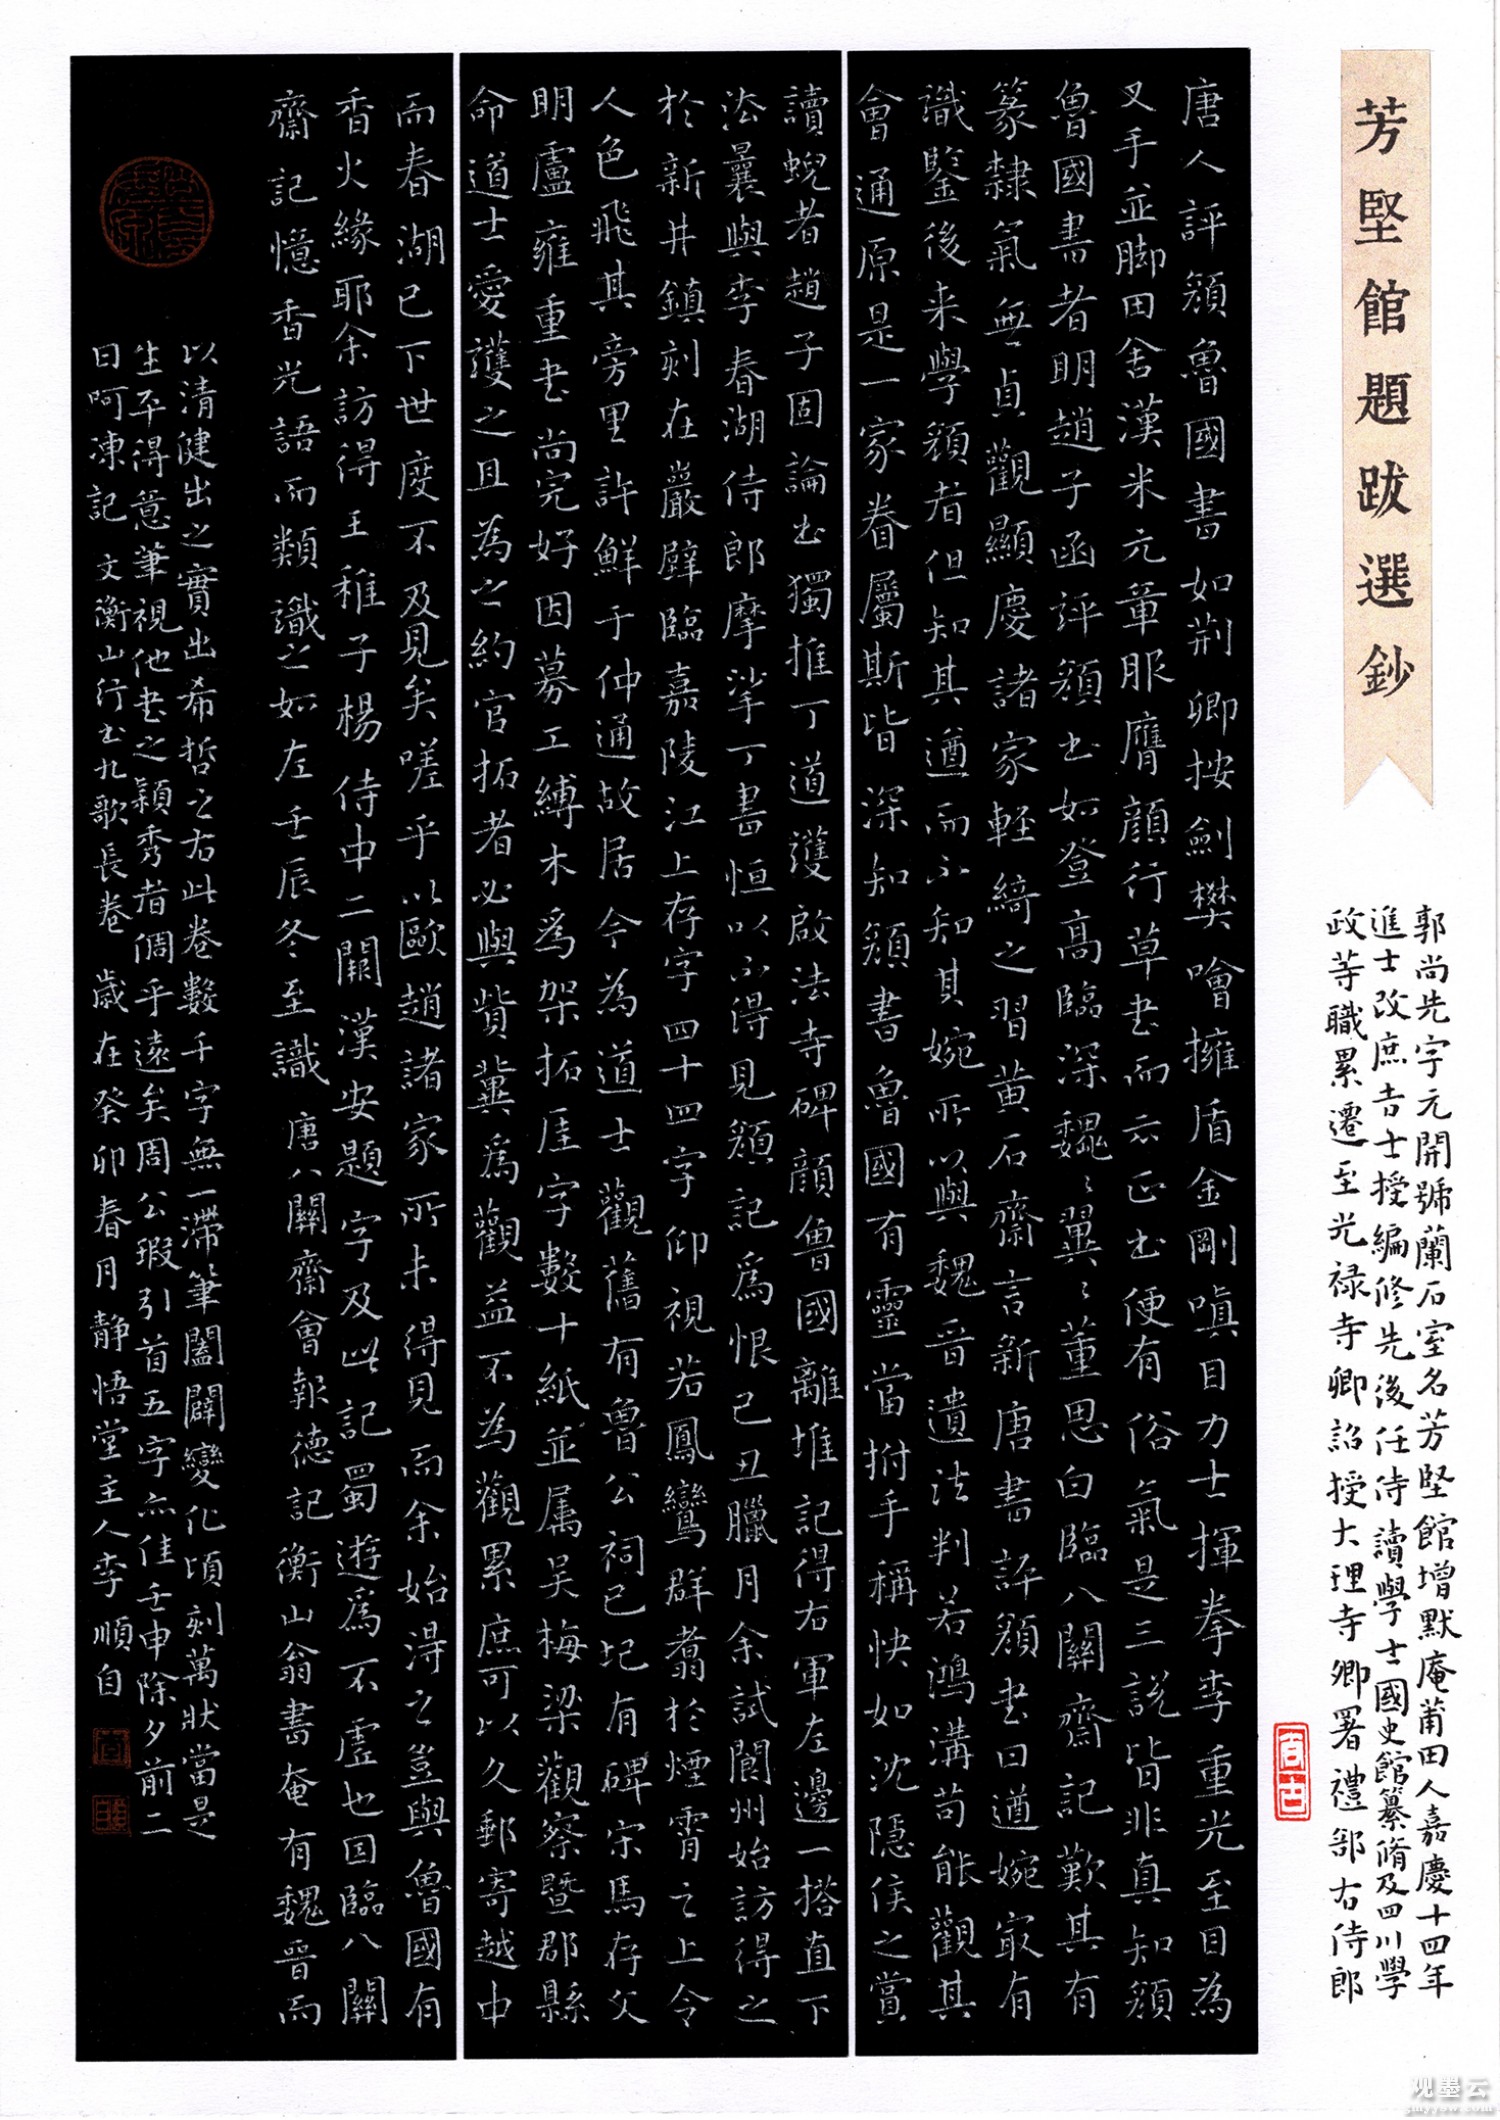 芳堅館題跋選鈔
郭尚先字元開號蘭石室名芳堅館增默庵莆田人嘉慶十四年
進士改庶吉士授編修先後任侍讀學士國史館纂脩及四川學
政等職累遷至光祿寺卿詔授大理寺卿署禮部右侍郎
唐人評顏魯國書如荆卿按劍樊噲擁盾金剛嗔目力士揮拳李重光至目為
叉手並脚田舍漢米元章服膺顏行草書而云正書便有俗氣是三說皆非真知顏
魯國書者明趙子函評顏書如登高臨深巍〻翼〻董思白臨八關齋記歎其有
篆隸氣無貞觀顯慶諸家輕綺之習黄石齋言新唐書評顏書曰遒婉冣有
識鑒後来學顏者但知其遒而不知其婉所以與魏晉遺法判若鴻溝苟能觀其
會通原是一家眷屬斯皆深知顏書魯國有靈當拊手稱快如沈隱侯之賞
讀蜺者趙子固論書獨推丁道護啟法寺碑顏魯國離堆記得右軍左邊一搭直下
法曩與李春湖侍郎摩挲丁書恒以不得見顏記爲恨己丑臘月余試閬州始訪得之
於新井鎮刻在巖壁臨嘉陵江上存字四十四字仰視若鳳鸞群翥於煙霄之上令
人色飛其旁里許鮮于仲通故居今為道士觀舊有魯公祠已圮有碑宋馬存父
明盧雍重書尚完好因募工縛木爲架拓厓字數十紙並属吴梅梁觀察暨郡縣
命道士愛護之且為之約官拓者必與貲冀爲觀益不為觀累庶可以久郵寄越中
而春湖已下世度不及見矣嗟乎以歐趙諸家所未得見而余始淂之豈與魯國有
香火緣耶余訪得王稚子楊侍中二闕漢安題字及此記蜀遊爲不虛也因臨八關
齋記憶香光語而類識之如左壬辰冬至識 唐八關齋會報德記衡山翁書奄有魏晉而
以清健出之實出希哲之右此卷數千字無一滯筆闔闢變化頃刻萬狀當是
生平得意筆視他書之穎秀者倜乎遠矣周公瑕引首五字亦佳壬申除夕前二
日呵凍記 文衡山行書九歌長卷 歲在癸卯春月靜悟堂主人李順自
观墨云